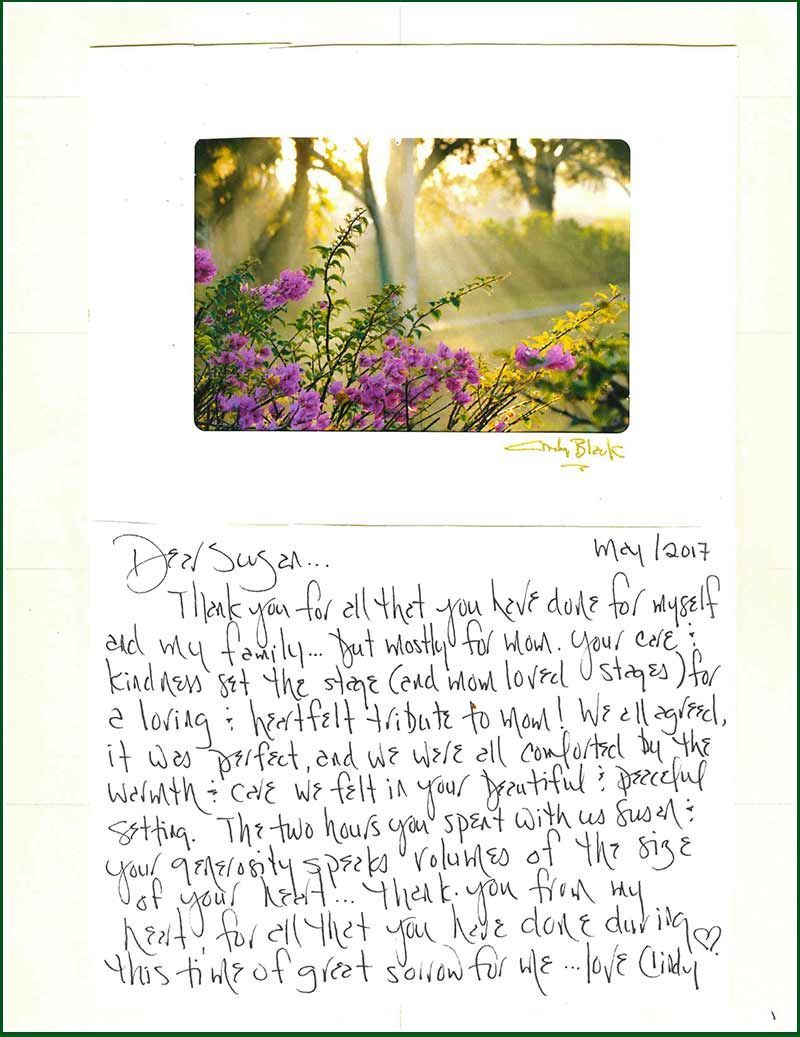 Cindy Black
Dear Susan... May/2017
Thank you for all that you have done for myself
and my family... but mostly for mom. Your care &
kindness set the stage (and mom loved stages) for
a loving & heartfelt tribute to mom! We all agreed,
it was perfect, and we were all comforted by the
warmth & care we felt in your beautiful & peaceful
setting. The two hours you spent with us Susan &
your generosity speaks volumes of the size
of your heart... Thank you from my
heart, for all that you have done during
this time of great sorrow for me ...love Cindy